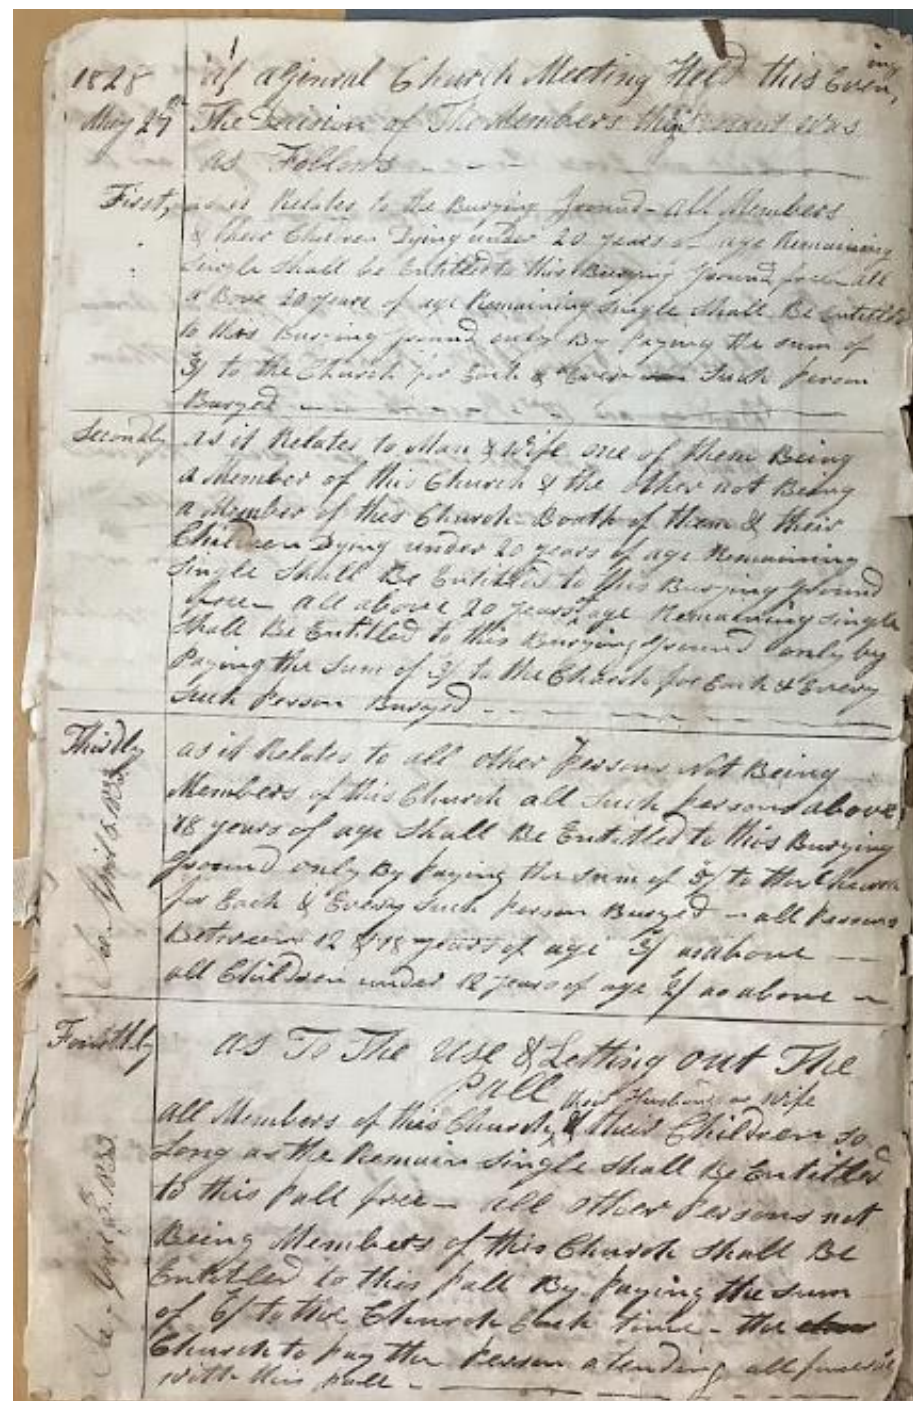 1828 At a General Church Meeting Held this Evening
May 27th The Decision of The Members then present was
as Follows
First, as it Relates to the Burying Ground - all Members
& their Children Dying under 20 years of age Remaining
Single Shall be Entitled to this Burying ground free - all
a Bove 20 years of age Remaining Single Shall Be Entitled
to this Burying ground only By Paying the sum of
3/ to the Church for Each & Every Such Person
Buryed
Secondly as it Relates to Man & Wife one of them Being
a Member of this Church & the other not Being
a Member of this Church Boath of them & their
Children Dying under 20 years of age Remaining
Single Shall Be Entitled to this Burying ground
free - all above 20 years age Remaining Single
Shall Be Entitled to this Burying Ground only by
Paying the Sum of 3/ to the Church for Each & Every
Such Person Buryed
Thirdly as it Relates to all other Persons Not Being
Members of this Church all Such persons above
18 years of age Shall Be Entitled to this Burying
ground only By Paying the Sum of 5/ to the Church
for Each & Every Such Person Buryed - all Persons
Between 12 & 18 years of age 3/ as above
all Children under 12 years of age 2/ as above
Fourthly as To The Use & Letting out The
Pall
all Members of this Church, their Husband or Wife & their Children so
Long as the Remain Single Shall Be Entitled
to this Pall free - all other Persons not
Being Members of this Church Shall Be
Entitled to this Pall By Paying the Sum
of 6/ to the Church Each time - the
Church to pay the Person atending all funerals
with this Pall -
1833
1833